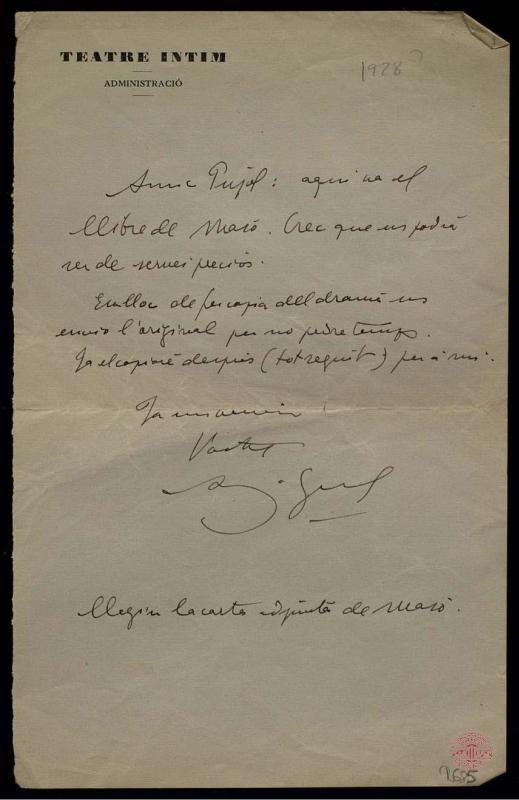 TEATRE INTIM
ADMINISTRACIÓ
1928?
Amic Pujol: aquí va el
llibre de Masó. Crec que us podrà
ser de servei preciós.
En lloc de fer copia del drama us
envio l'original per no perdre temps.
Ja el copiaré després (tot seguit) per a mi.
Vostre
Llegiu la carta adjunta de Masó.